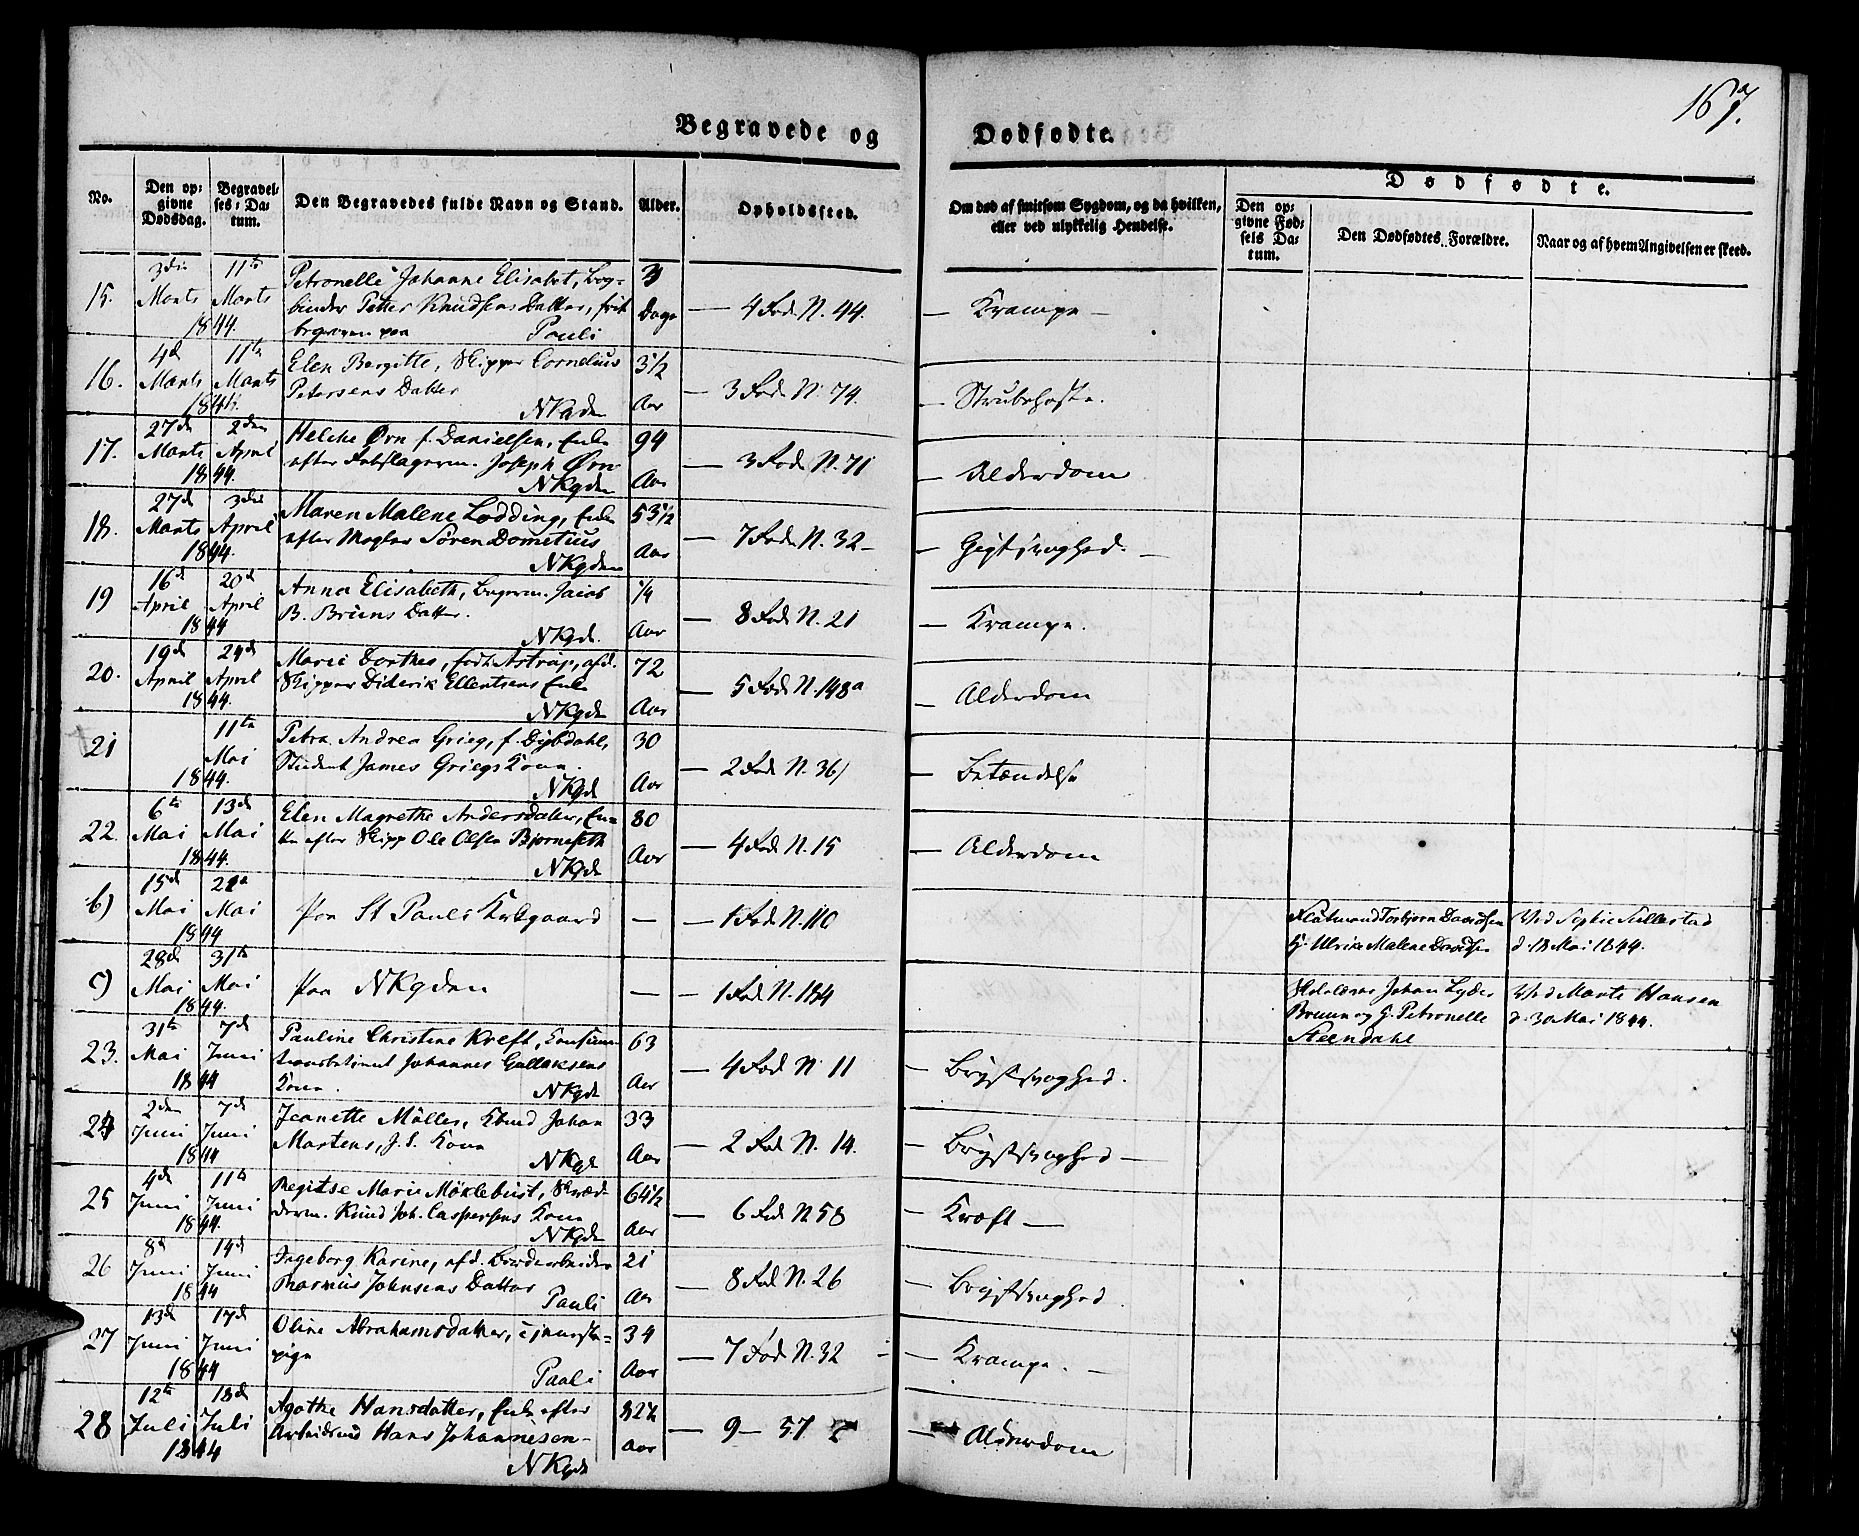 167.
Begravede og Dødfødte.
No.
Den opgivne Dødsdag.
Begravelses-Datum.
Den Begravedes fulde Navn og Stand.
Alder.
Opholdssted.
Om død af smitsom Sygdom, og da hvilken, eller ved ulykkelig Hendelse.
Dødfødte.
Den opgivne Fødsels Datum.
Den Dødfødtes Forældre.
Naar og af hvem Angivelsen er skeed.
15. 3die Marts 11te Marts 1844. Petronelle Johanne Elisabet, Bog-
binder Petter Knudsens Datter, frit
begraven paa Pauli
3 Dage — 4 Rode N. 44. — Krampe —
16. 4d Marts 11te Marts 1844. Elen Bergitte, Skipper Cornelius
Petersens Datter
NKgden
3½ Aar — 3 Rode N. 74. — Strubehoste.
17. 27de Marts 2den April 1844. Helche Ørn f. Danielsen, Enke
efter Joseph Ørn
NKgden
94 Aar — 3 Rode N. 71 — Alderdom
18. 27d Marts 3die April 1844. Maren Malene Lodding, Enke
efter Mægler Søren Dometius
NKgden
53½ Aar — 7 Rode N. 32 — — Gigtsvaghed. —
19 16d April 20d April 1844 Anna Elisabeth, Bagerm. Jacob
B. Bruns Datter.
NKgd.
¼ Aar — 8 Rode N. 21 — Krampe.
20. 19d April 24d April 1844. Marie Dorthea, født Astrup, afd.
Skipper Diderik Ellertsens Enke
NKgde
72 Aar — 5 Rode N. 148a — Alderdom
21 11te Mai 1844. Petra Andrea Grieg, f. Dybdahl,
Student James Griegs Kone.
NKgd
30 Aar — 2 Rode N. 36 — Betændelse
22. 6te Mai 13d Mai 1844. Elen Magrethe Andersdatter, En-
ke efter Skipp Ole Olsen Bjørneseth
NKgde
80 Aar — 4 Rode N. 15 — Alderdom
b) 15d Mai Mai 1844 paa St Pauls Kirkgaard — — 1 Rode N. 110
Torbjørn Davidsen
H. Ulrika Malene Davidsen
Ved Sophie
d. 18 Mai 1844.
c) 28d Mai 31te Mai 1844. paa NKgden — — 1 Rode N. 184
Johan Lyder
Bruun og H. Petronelle
Steendahl
Ved Marte Hansen
d. 30 Mai 1844.
23. 31te Mai 7d Juni 1844 Pauline Christine Kreft,
Johannes Gullaksens
Kone.
NKgde
63 Aar — 4 Rode N. 11 — Brystsvaghed.
24 2den Juni 7d Juni 1844 Jeanette Müller, Kbmd Johan
Martens, J. S. Kone
NKgd
33 Aar — 2 Rode N. 14. — Brystsvaghed —
25 4d Juni 11te Juni 1844. Regitse Marie Møklebust, Skræd-
derm. Knud Joh. Caspersens Kone
NKgde
64½ Aar — 6 Rode N 58 — Kræft —
26 8d Juni 14d Juni 1844 Ingeborg Karine, afd.
Rasmus Johnsens Datter
Pauli
21 Aar — 8 Rode N. 26 — Brystsvaghed.
27 13d Juni 17d Juni 1844 Oline Abrahamsdatter, Tjeneste-
pige
Pauli
34 Aar — 7 Rode N. 32 — — Krampe. —
28 12te Juli 18d Juli 1844 Agathe Hansdatter, Enke efter
Arbeidsmd Hans Johannesen —
NKgde
82½ Aar — 9 — 57 — Alderdom